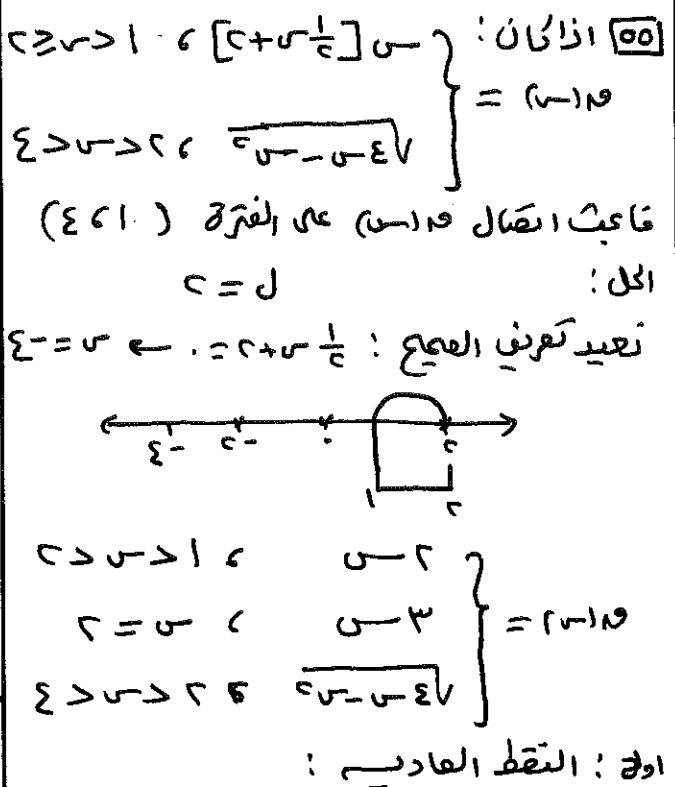 ٥٥ اذا كان : ق(س) = { س [½ س + ٢] ، ١ < س ≤ ٢
√(٤س − س²) ، ٢ < س < ٤
فابحث اتصال ق(س) على الفترة (١ ، ٤)
الحل : ل = ٢
نعيد تعريف الصحيح : ½ س + ٢ = ٠ ← س = -٤
-٤ -٢ ٠ ٢
١ ٢
ق(س) = { ٢س ، ١ < س < ٢
٣س ، س = ٢
√(٤س − س²) ، ٢ < س < ٤
اولاً : النقط العادية :